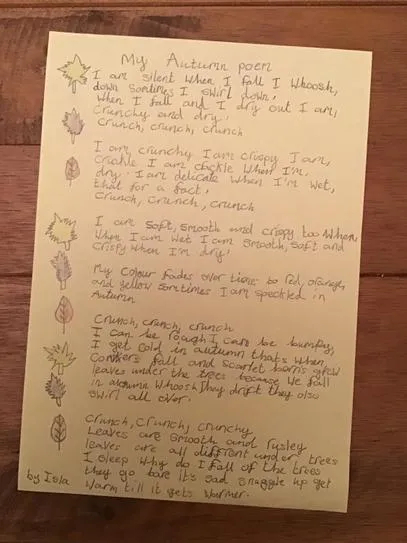 My Autumn poem
I am silent when I fall I whoosh,
down somtimes I swirl down,
When I fall and I dry out I am,
Crunchy and dry!
Crunch, crunch, crunch
I am crunchy I am crispy I am,
Crickle I am cackle when I'm.
dry. I am delicate when I'm wet,
that for a fact!
Crunch, Crunch, crunch
I are soft, smooth and crispy too when,
When I am wet I am smooth, soft and
crispy when I'm dry!
My colour fades over time to red, orange,
and yellow somtimes I am speckled in
Autumn
Crunch, crunch, crunch
I can be rough I can be bumpy,
I get cold in autumn thats when
Conkers fall and scarlet berris grow
leaves under the trees because we fall
in autumn whoosh They drift they also
swirl all over.
Crunch, Crunch, crunchy
Leaves are smooth and rusley
leaves are all different under trees
I sleep why do I fall of the trees
they go bare It's sad snuggle up get
warm till it gets warmer.
by Isla